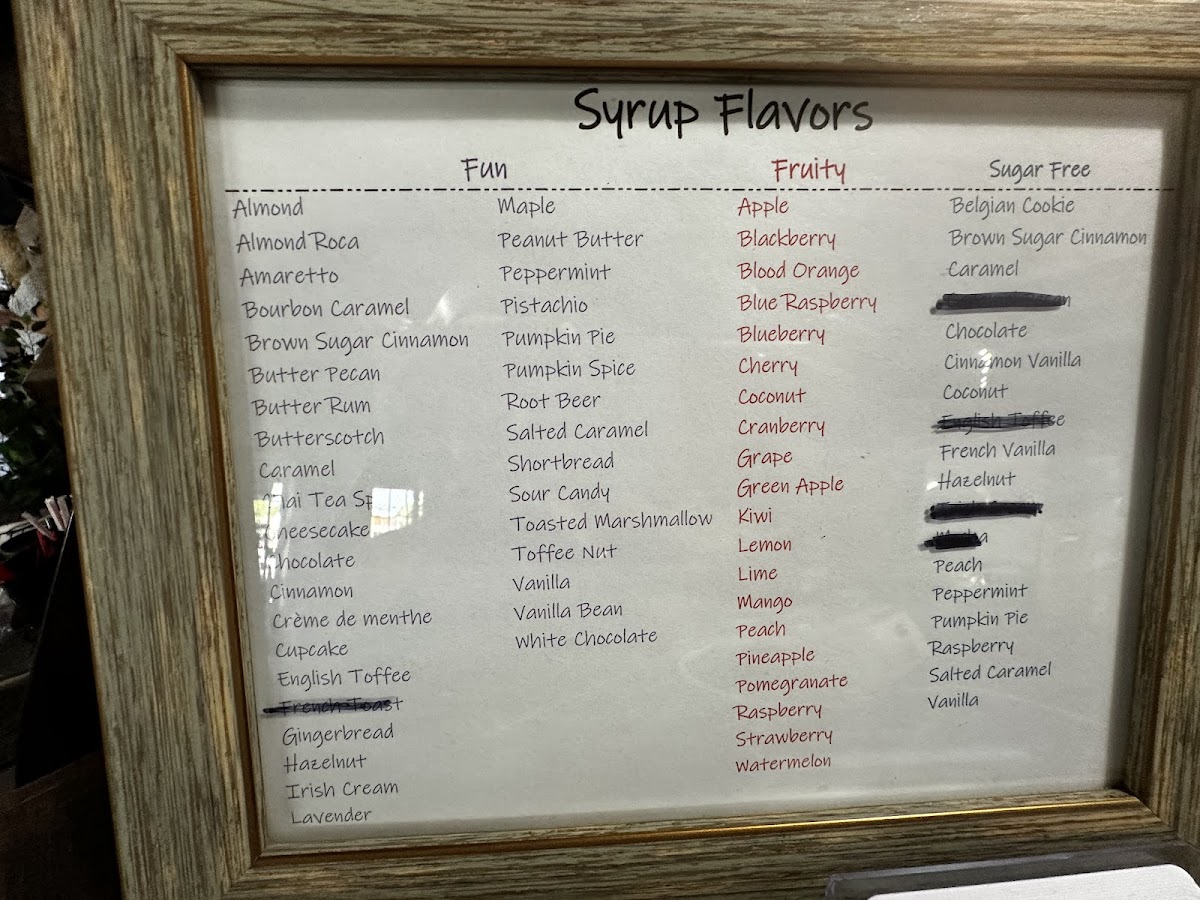 Syrup Flavors
Fun
Almond
Almond Roca
Amaretto
Bourbon Caramel
Brown Sugar Cinnamon
Butter Pecan
Butter Rum
Butterscotch
Caramel
Chai Tea
Cheesecake
Chocolate
Cinnamon
Crème de menthe
Cupcake
English Toffee
French Toast
Gingerbread
Hazelnut
Irish Cream
Lavender
Maple
Peanut Butter
Peppermint
Pistachio
Pumpkin Pie
Pumpkin Spice
Root Beer
Salted Caramel
Shortbread
Sour Candy
Toasted Marshmallow
Toffee Nut
Vanilla
Vanilla Bean
White Chocolate
Fruity
Apple
Blackberry
Blood Orange
Blue Raspberry
Blueberry
Cherry
Coconut
Cranberry
Grape
Green Apple
Kiwi
Lemon
Lime
Mango
Peach
Pineapple
Pomegranate
Raspberry
Strawberry
Watermelon
Sugar Free
Belgian Cookie
Brown Sugar Cinnamon
Caramel
Chocolate
Cinnamon Vanilla
Coconut
English Toffee
French Vanilla
Hazelnut
Peach
Peppermint
Pumpkin Pie
Raspberry
Salted Caramel
Vanilla